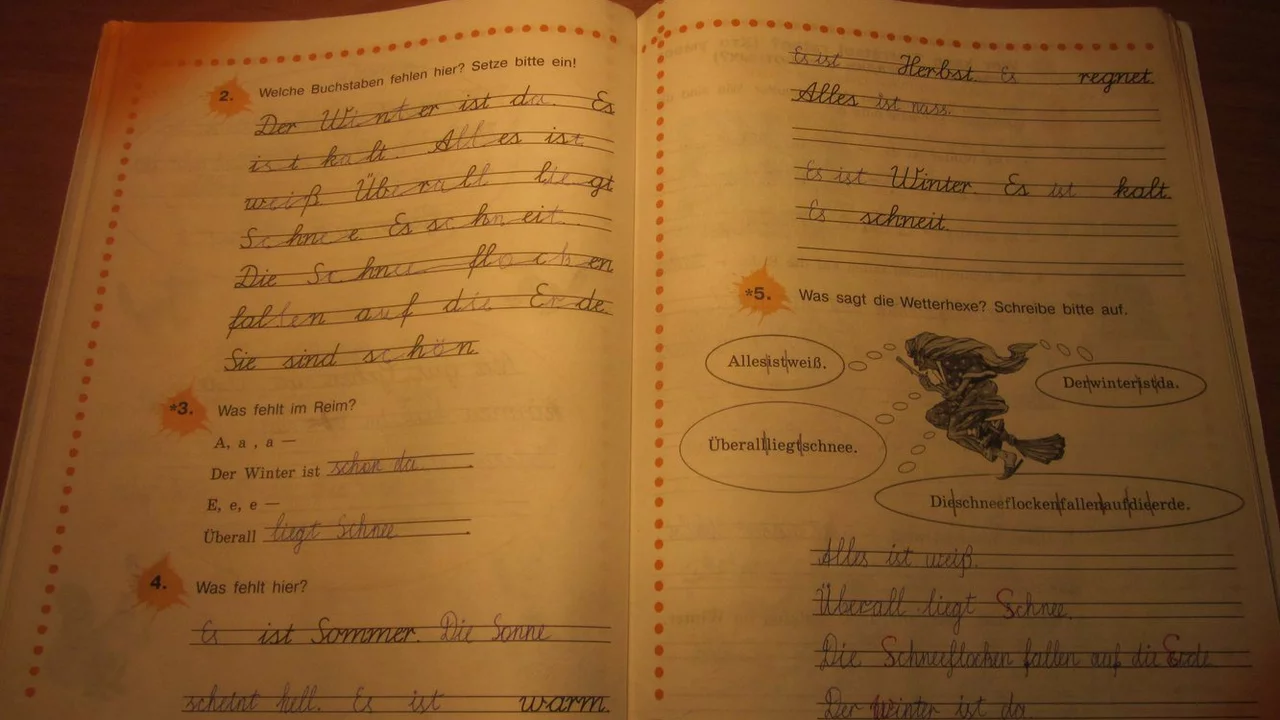 2. Welche Buchstaben fehlen hier? Setze bitte ein!
Der Winter ist da. Es
ist kalt. Alles ist
weiß Überall liegt
Schnee Es schneit.
Die Schneeflocken
fallen auf die Erde.
Sie sind schön
*3. Was fehlt im Reim?
A, a , a —
Der Winter ist schon da.
E, e, e —
Überall liegt Schnee.
4. Was fehlt hier?
Es ist Sommer. Die Sonne
scheint hell. Es ist warm.
Es ist Herbst. Es regnet.
Alles ist nass.
Es ist Winter. Es ist kalt.
Es schneit.
*5. Was sagt die Wetterhexe? Schreibe bitte auf.
Allesistweiß.
Derwinteristda.
Überallliegtschnee.
Dieschneeflockenfallenaufdieerde.
Alles ist weiß.
Überall liegt Schnee.
Die Schneeflocken fallen auf die Erde
Der Winter ist da.